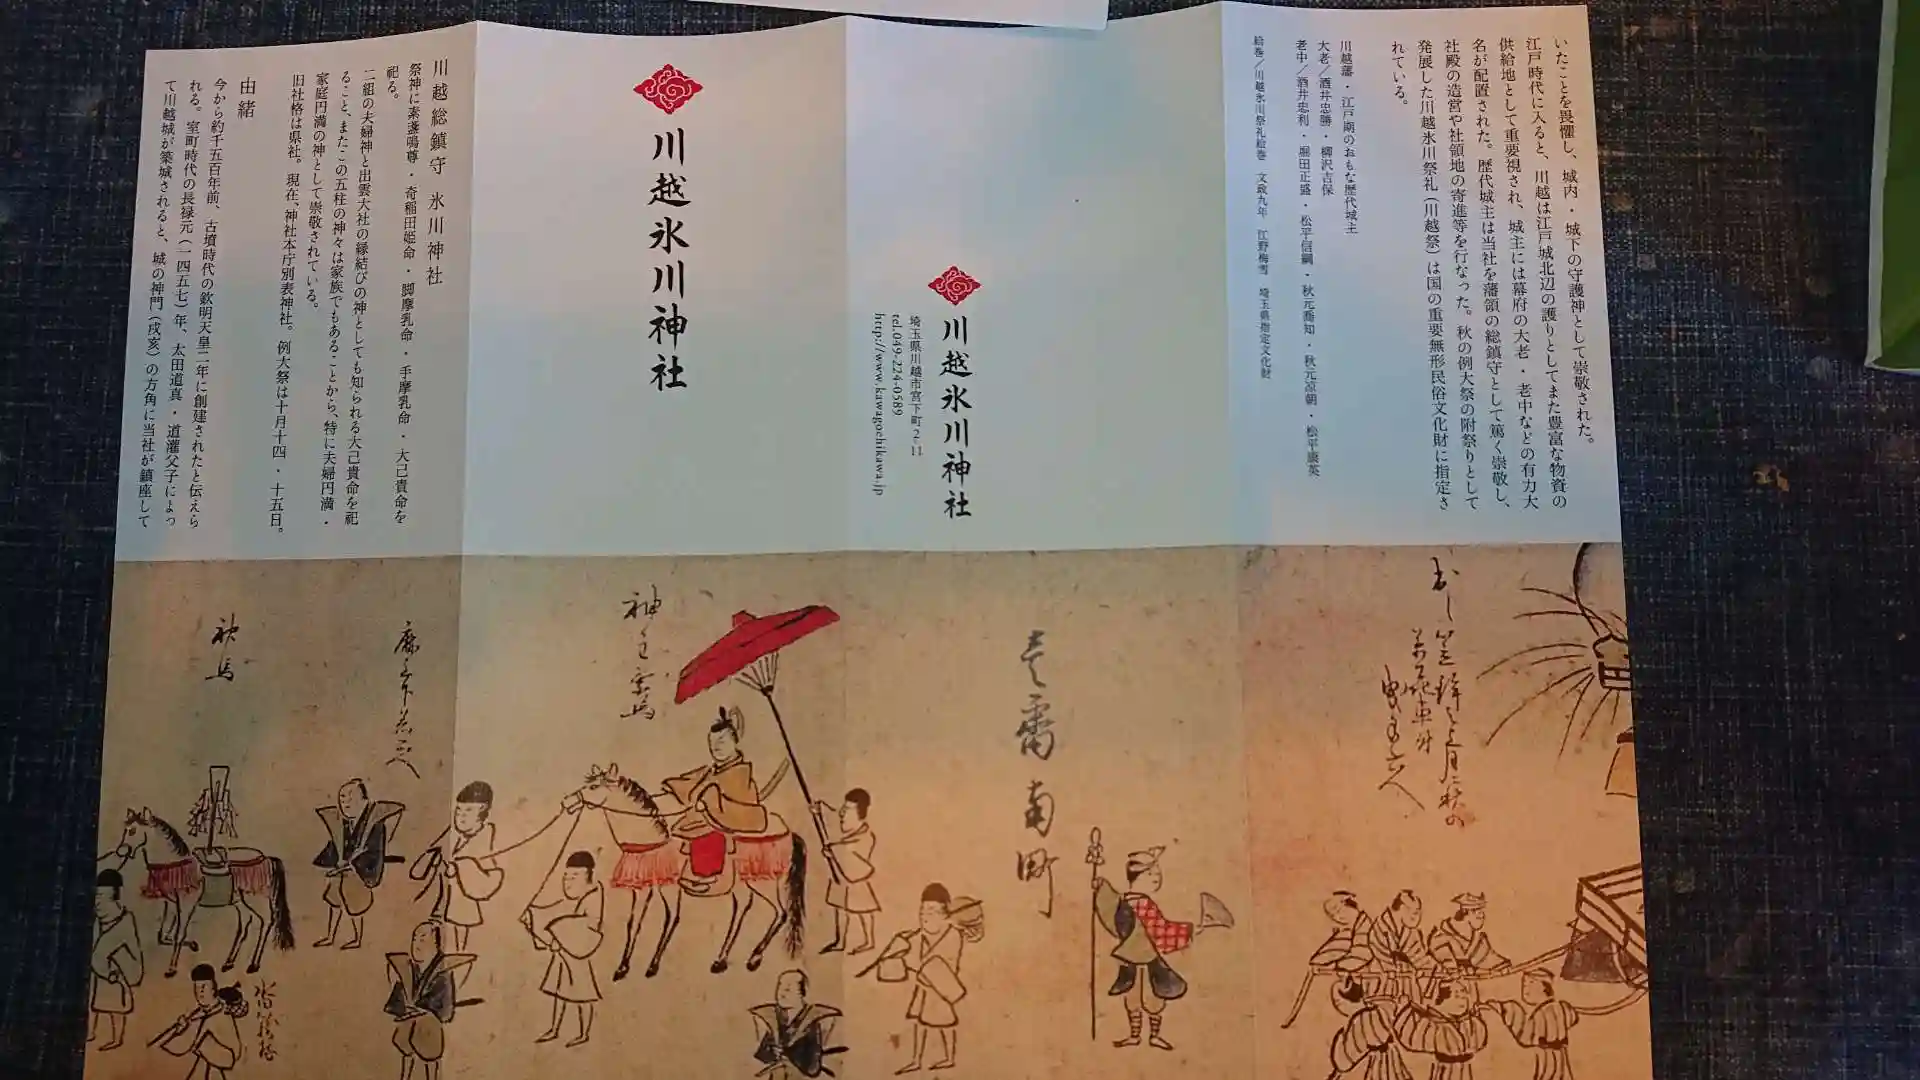 いたことを畏懼し、城内・城下の守護神として崇敬された。
江戸時代に入ると、川越は江戸城北辺の護りとしてまた豊富な物資の
供給地として重要視され、城主には幕府の大老・老中などの有力大
名が配置された。歴代城主は当社を藩領の総鎮守として篤く崇敬し、
社殿の造営や社領地の寄進等を行なった。秋の例大祭の附祭りとして
発展した川越氷川祭礼(川越祭)は国の重要無形民俗文化財に指定さ
れている。
川越藩・江戸期のおもな歴代城主
大老/酒井忠勝・柳沢吉保
老中/酒井忠利・堀田正盛・松平信綱・秋元喬知・秋元凉朝・松平康英
絵巻/川越氷川祭礼絵巻 文政九年 江野梅雪 埼玉県指定文化財
川越氷川神社
埼玉県川越市宮下町2-11
tel.049-224-0589
http://www.kawagoehikawa.jp
川越氷川神社
川越総鎮守 氷川神社
祭神に素盞嗚尊・奇稲田姫命・脚摩乳命・手摩乳命・大己貴命を
祀る。
二組の夫婦神と出雲大社の縁結びの神としても知られる大己貴命を祀
ること、またこの五柱の神々は家族でもあることから、特に夫婦円満・
家庭円満の神として崇敬されている。
旧社格は県社。現在、神社本庁別表神社。例大祭は十月十四・十五日。
由緒
今から約千五百年前、古墳時代の欽明天皇二年に創建されたと伝えら
れる。室町時代の長禄元(一四五七)年、太田道真・道灌父子によっ
て川越城が築城されると、城の神門(戌亥)の方角に当社が鎮座して
南町
神主